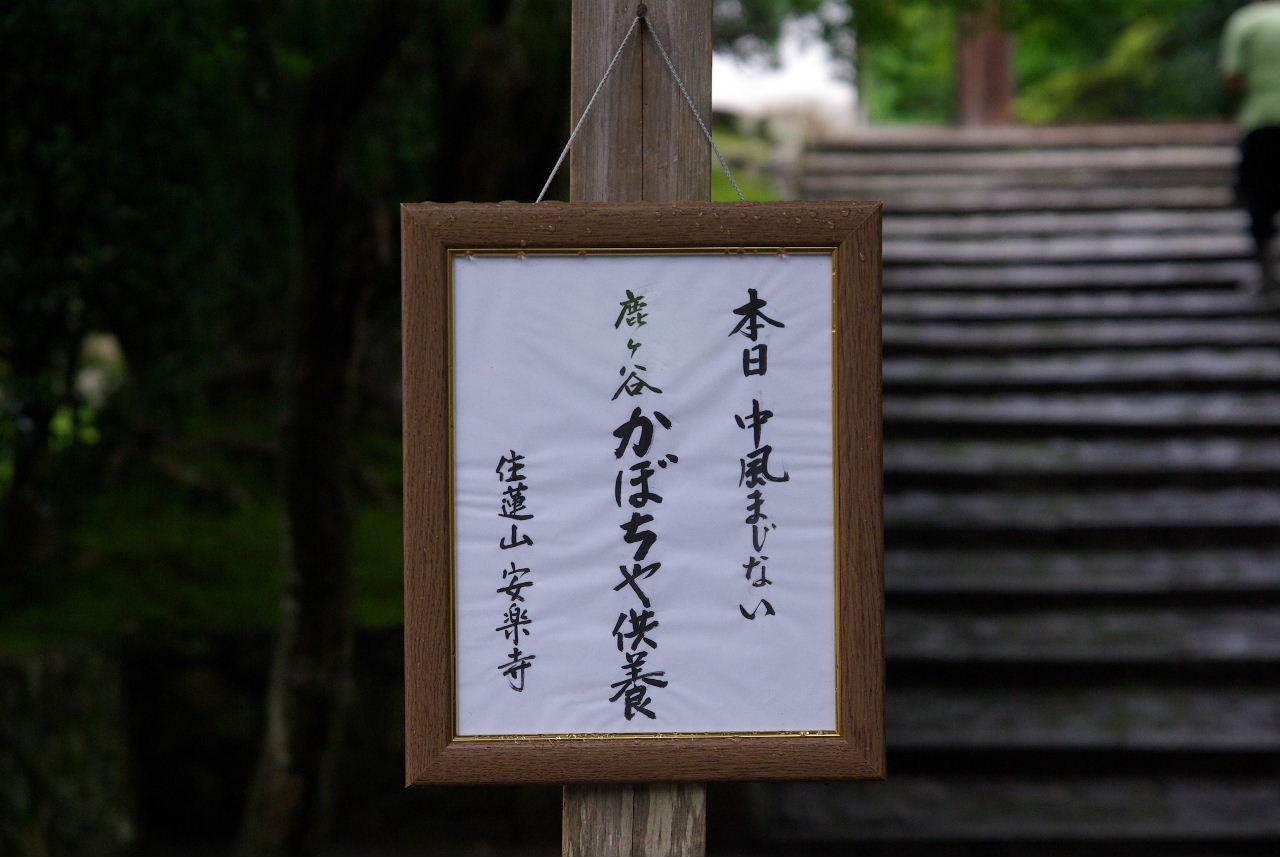 本日 中風まじない
鹿ヶ谷かぼちゃ供養
住蓮山 安楽寺